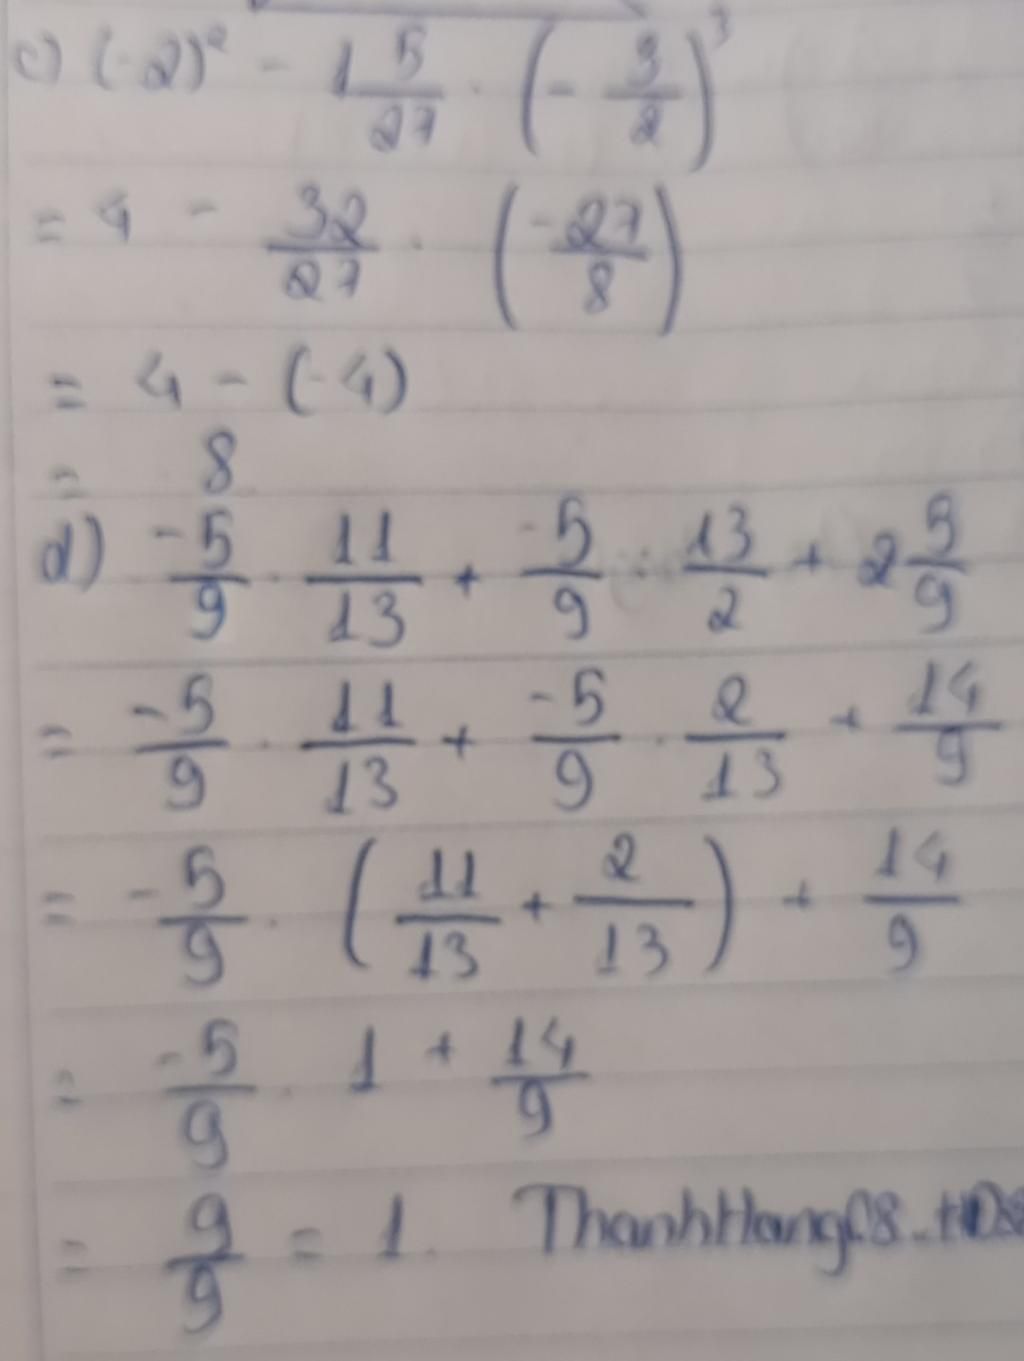 c) (-2)² - 1 5/27 · (-3/2)³
= 4 - 32/27 · (-27/8)
= 4 - (-4)
= 8
d) -5/9 · 11/13 + -5/9 : 13/2 + 2 5/9
= -5/9 · 11/13 + -5/9 · 2/13 + 14/9
= -5/9 · (11/13 + 2/13) + 14/9
= -5/9 · 1 + 14/9
= 9/9 = 1.